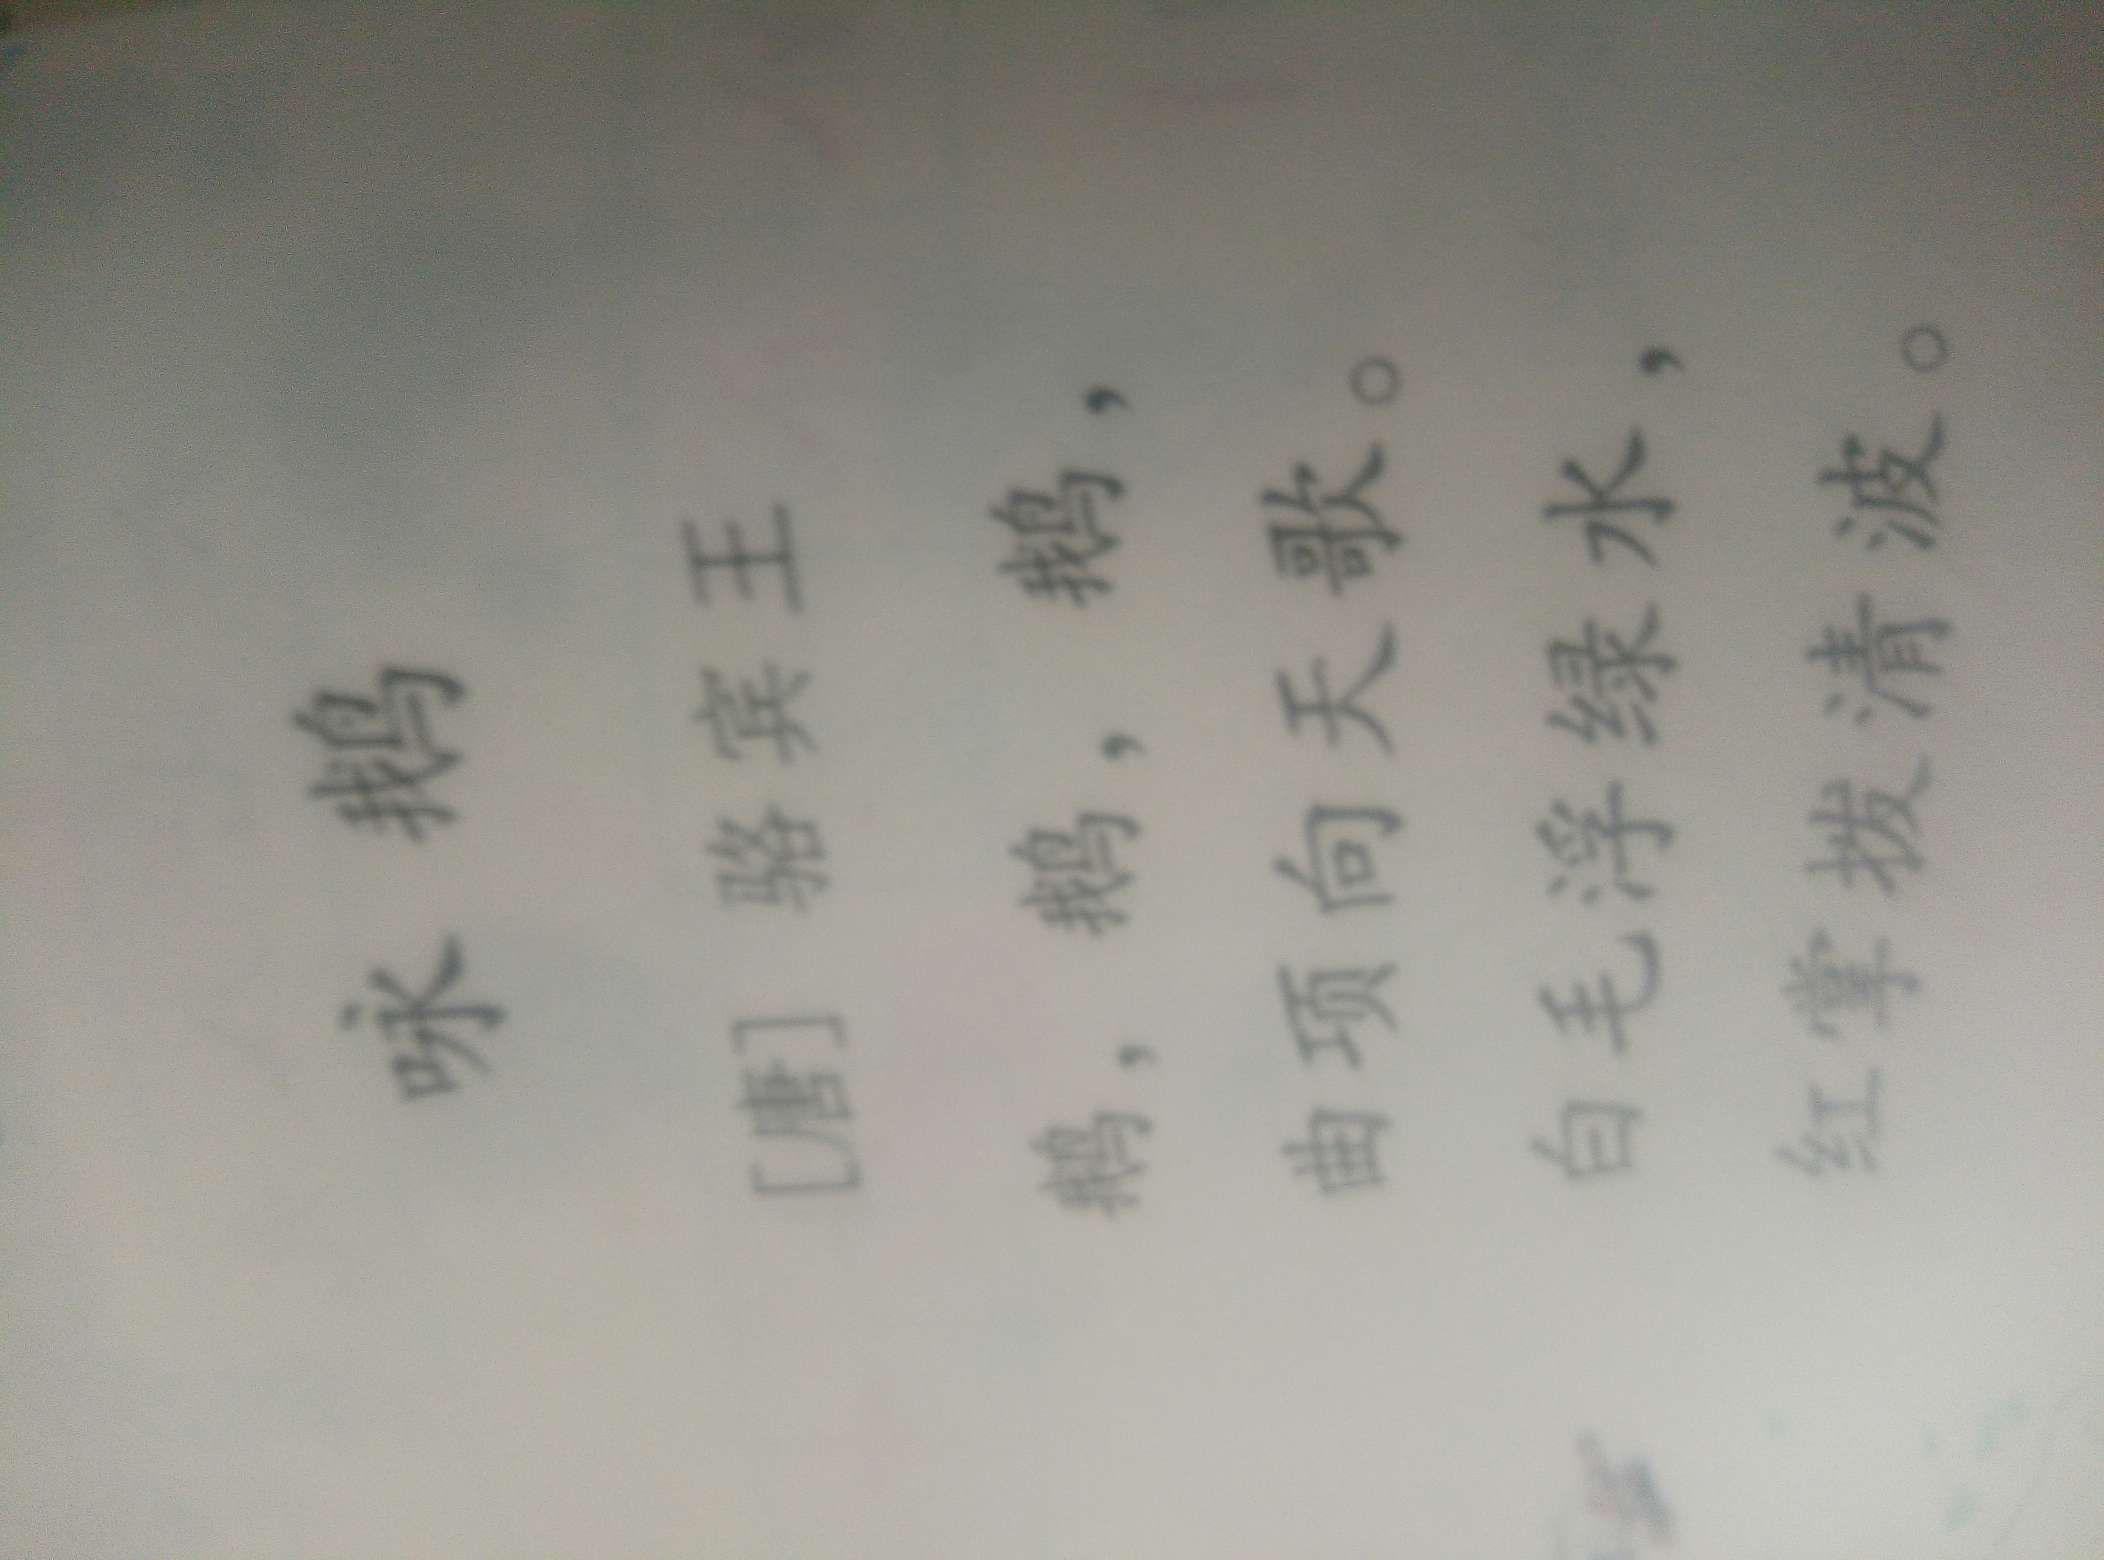 咏鹅
[唐] 骆宾王
鹅，鹅，鹅，
曲项向天歌。
白毛浮绿水，
红掌拨清波。